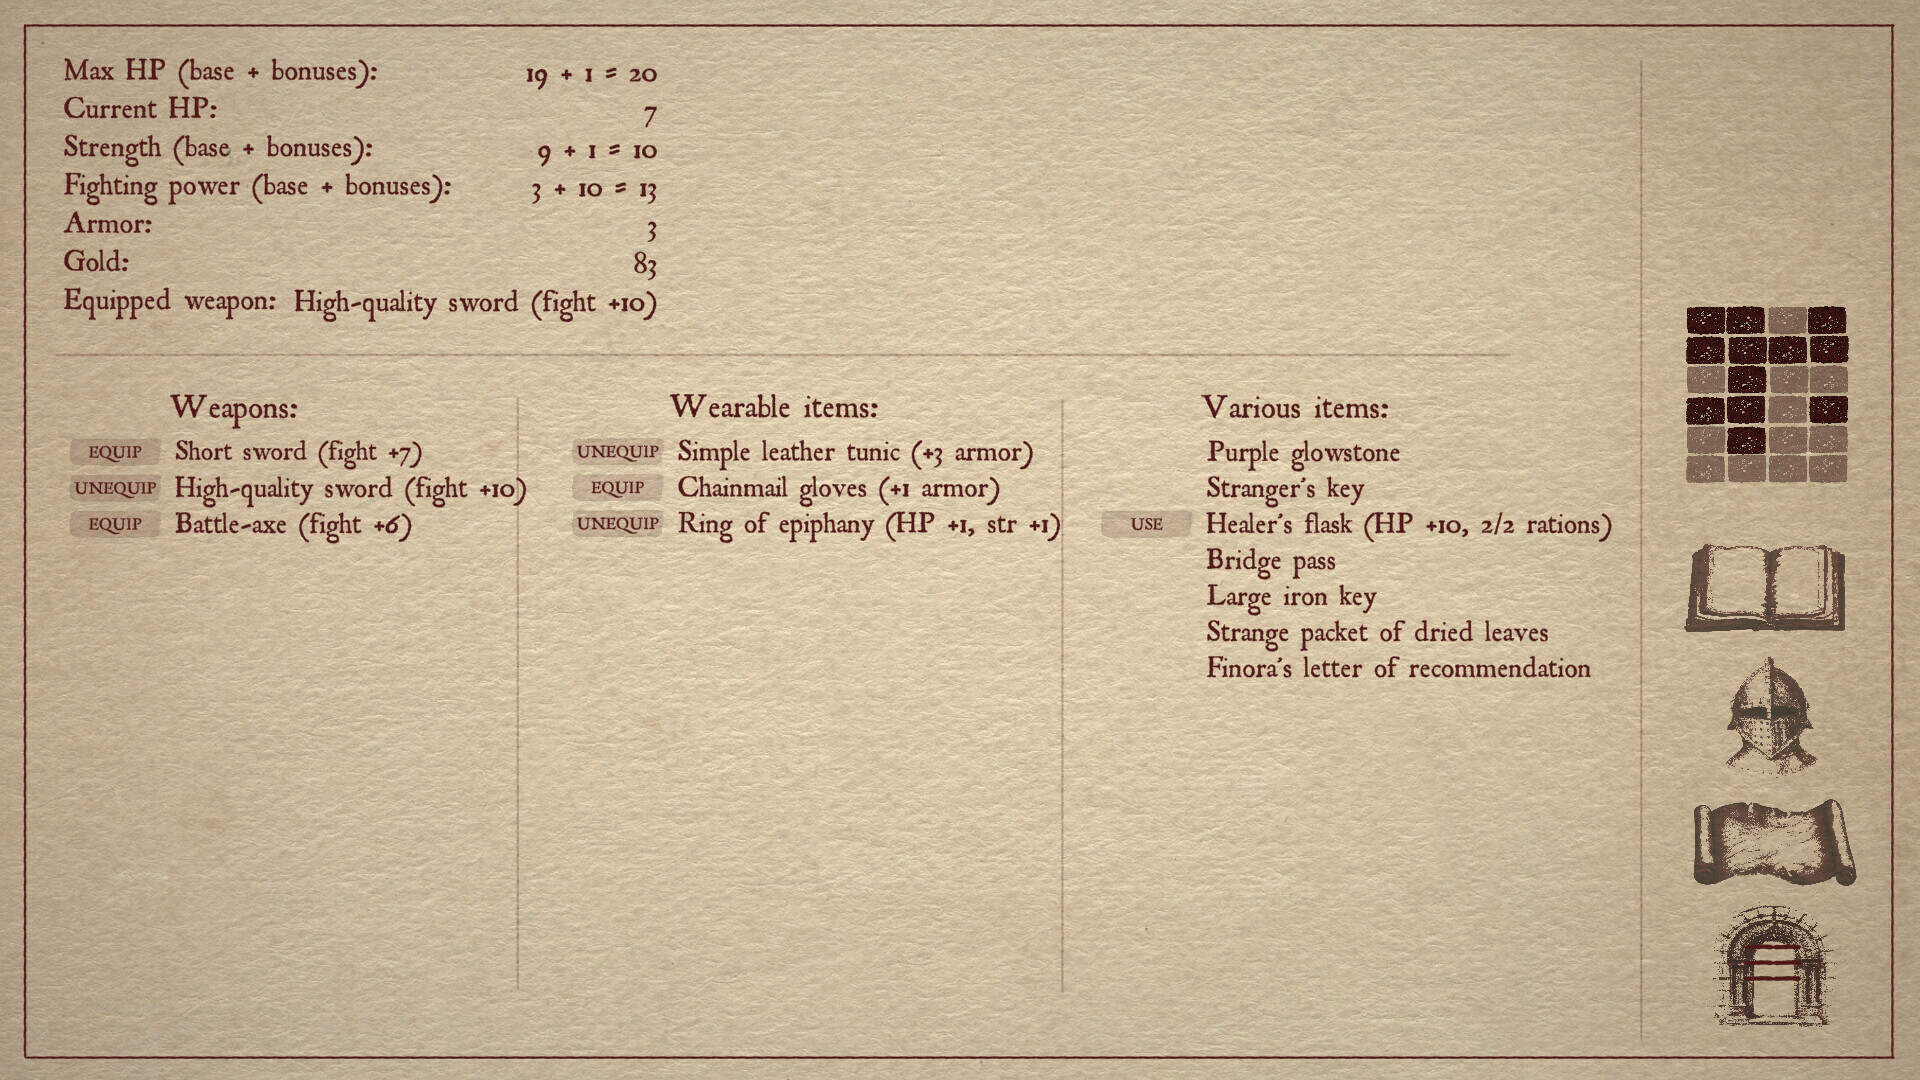 Max HP (base + bonuses): 19 + 1 = 20
Current HP: 7
Strength (base + bonuses): 9 + 1 = 10
Fighting power (base + bonuses): 3 + 10 = 13
Armor: 3
Gold: 83
Equipped weapon: High-quality sword (fight +10)
Weapons:
EQUIP Short sword (fight +7)
UNEQUIP High-quality sword (fight +10)
EQUIP Battle-axe (fight +6)
Wearable items:
UNEQUIP Simple leather tunic (+3 armor)
EQUIP Chainmail gloves (+1 armor)
UNEQUIP Ring of epiphany (HP +1, str +1)
Various items:
Purple glowstone
Stranger's key
USE Healer's flask (HP +10, 2/2 rations)
Bridge pass
Large iron key
Strange packet of dried leaves
Finora's letter of recommendation